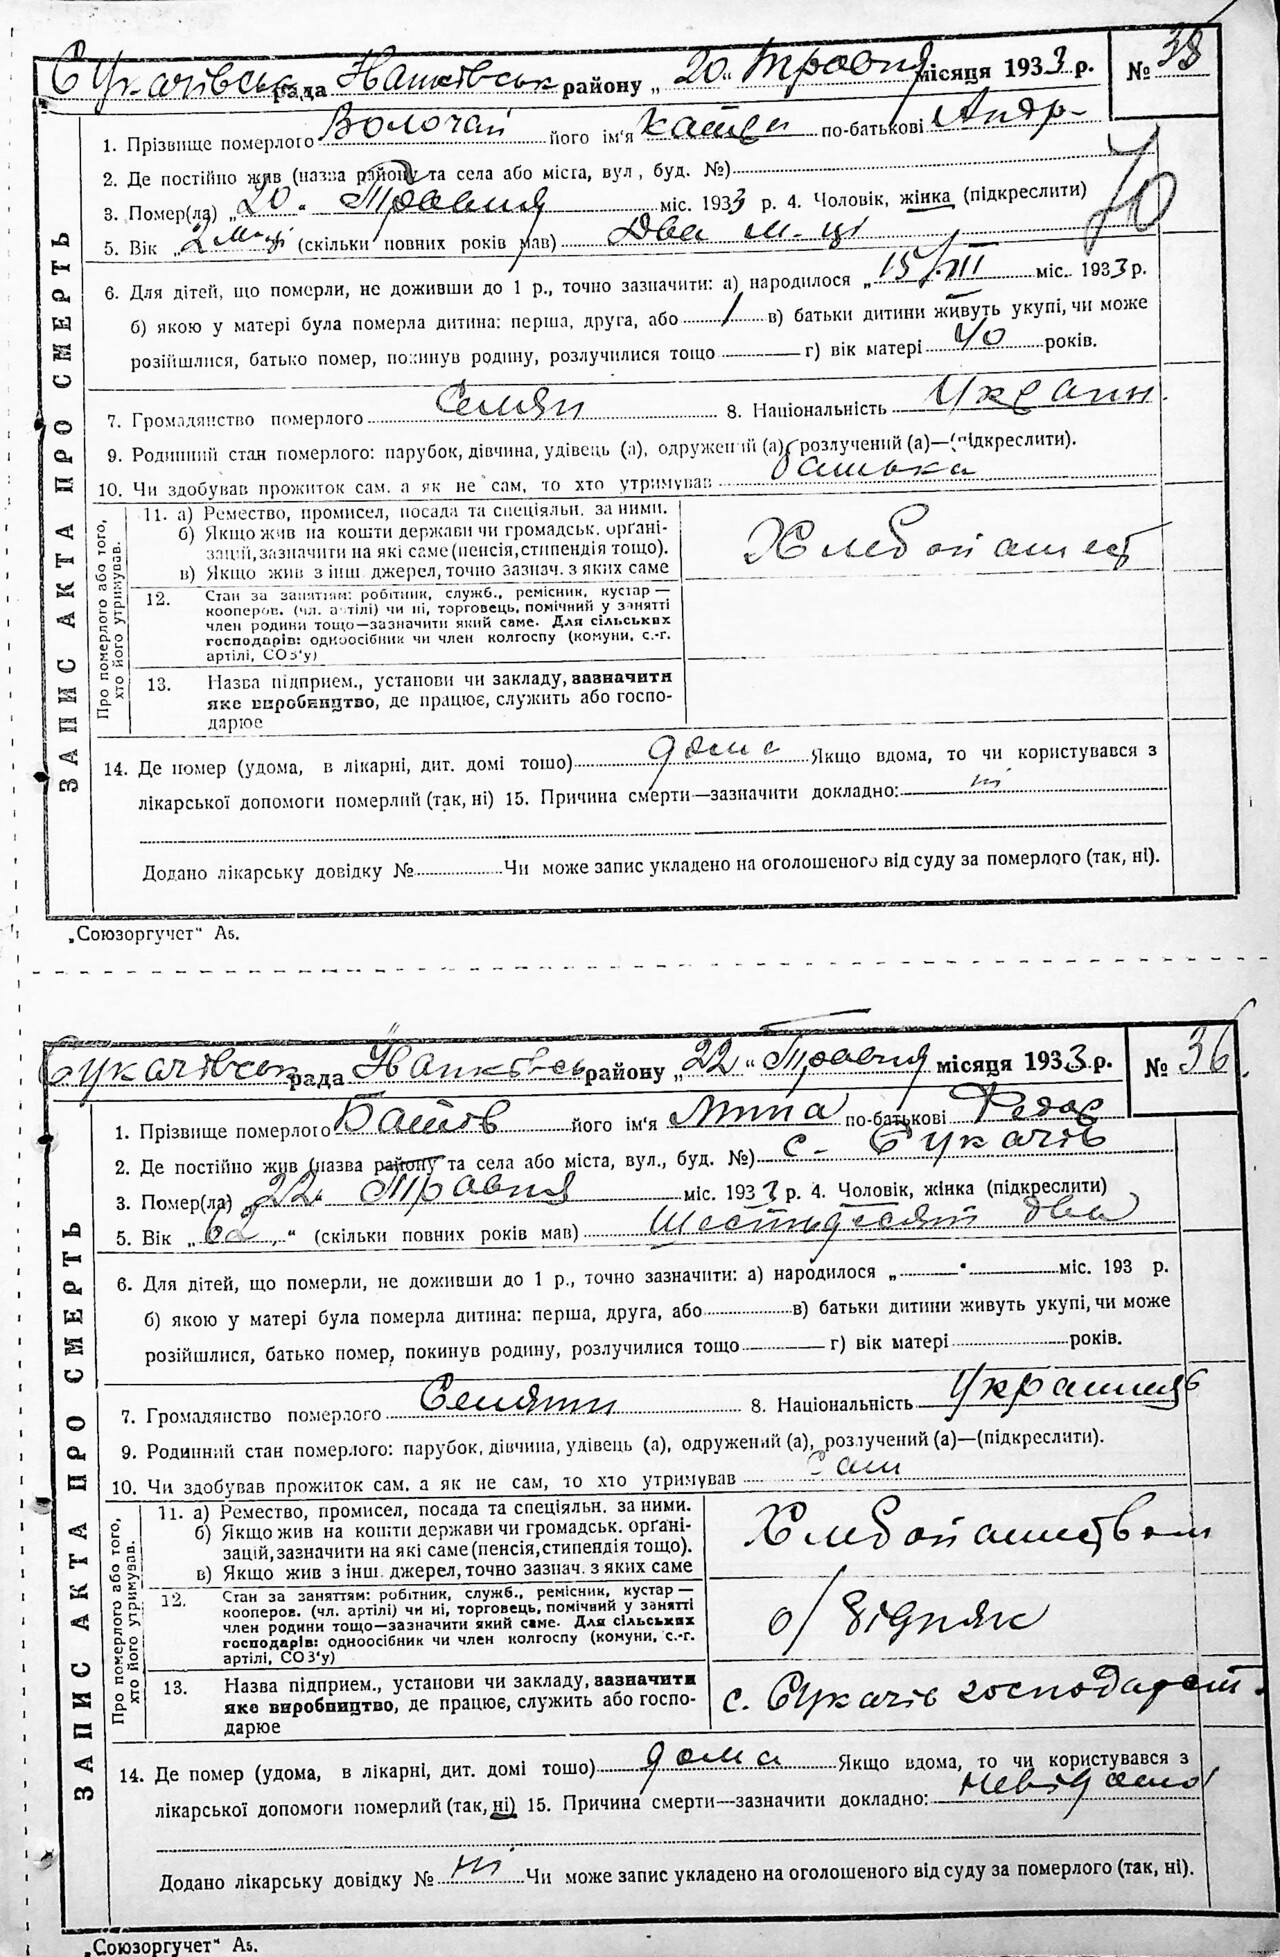 Сукачівська рада Наталівськ району „20“ Травня місяця 1933 р. № 35
1. Прізвище померлого Волочай його ім'я Катер по-батькові Андр-
2. Де постійно жив (назва району та села або міста, вул, буд. №)
70
3. Помер(ла) „20“ Травня міс. 1933 р. 4. Чоловік, жінка (підкреслити)
5. Вік „2 міс“ (скільки повних років мав) Два м-ці
6. Для дітей, що померли, не доживши до 1 р., точно зазначити: а) народилося „15/III міс. 1933 р.
б) якою у матері була померла дитина: перша, друга, або 1 в) батьки дитини живуть укупі, чи може
розійшлися, батько помер, покинув родину, розлучилися тощо г) вік матері 40 років.
7. Громадянство померлого Селян 8. Національність Україн.
9. Родинний стан померлого: парубок, дівчина, удівець (а), одружений (а), розлучений (а)—(підкреслити).
10. Чи здобував прожиток сам, а як не сам, то хто утримував батько
ЗАПИС АКТА ПРО СМЕРТЬ
Про померлого або того, хто його утримував.
11. а) Ремество, промисел, посада та спеціяльн. за ними.
б) Якщо жив на кошти держави чи громадськ. органі-
зацій, зазначити на які саме (пенсія, стипендія тощо).
в) Якщо жив з інш. джерел, точно зазнач. з яких саме
Хлебопашест
12. Стан за заняттям: робітник, служб., ремісник, кустар—
кооперов. (чл. артілі) чи ні, торговець, помічний у занятті
член родини тощо—зазначити який саме. Для сільських
господарів: одноосібник чи член колгоспу (комуни, с.-г.
артілі, СОЗ'у)
13. Назва підприєм., установи чи закладу, зазначити
яке виробництво, де працює, служить або госпо-
дарює
14. Де помер (удома, в лікарні, дит. домі тощо) дома Якщо вдома, то чи користувався з
лікарської допомоги померлий (так, ні) 15. Причина смерти—зазначити докладно: ні
Додано лікарську довідку № Чи може запис укладено на оголошеного від суду за померлого (так, ні).
„Союзоргучет“ А5.
Сукачівськ рада району „22“ Травня місяця 1933 р. № 36.
1. Прізвище померлого його ім'я по-батькові Федор
2. Де постійно жив (назва району та села або міста, вул., буд. №) с- Сукачів
3. Помер(ла) 22 Травня міс. 1933 р. 4. Чоловік, жінка (підкреслити)
5. Вік „62“ (скільки повних років мав) Шестьдесят два
6. Для дітей, що померли, не доживши до 1 р., точно зазначити: а) народилося „ міс. 193 р.
б) якою у матері була померла дитина: перша, друга, або в) батьки дитини живуть укупі, чи може
розійшлися, батько помер, покинув родину, розлучилися тощо г) вік матері років.
7. Громадянство померлого Селянин 8. Національність
9. Родинний стан померлого: парубок, дівчина, удівець (а), одружений (а), розлучений (а)—(підкреслити).
10. Чи здобував прожиток сам, а як не сам, то хто утримував Сам
ЗАПИС АКТА ПРО СМЕРТЬ
Про померлого або того, хто його утримував.
11. а) Ремество, промисел, посада та спеціяльн. за ними.
б) Якщо жив на кошти держави чи громадськ. органі-
зацій, зазначити на які саме (пенсія, стипендія тощо).
в) Якщо жив з інш. джерел, точно зазнач. з яких саме
Хлебопашеством
12. Стан за заняттям: робітник, служб., ремісник, кустар—
кооперов. (чл. артілі) чи ні, торговець, помічний у занятті
член родини тощо—зазначити який саме. Для сільських
господарів: одноосібник чи член колгоспу (комуни, с.-г.
артілі, СОЗ'у)
о/бідняк
13. Назва підприєм., установи чи закладу, зазначити
яке виробництво, де працює, служить або госпо-
дарює
с. Сукачів господарст.
14. Де помер (удома, в лікарні, дит. домі тощо) дома Якщо вдома, то чи користувався з
лікарської допомоги померлий (так, ні) 15. Причина смерти—зазначити докладно: невідомо
Додано лікарську довідку № ні Чи може запис укладено на оголошеного від суду за померлого (так, ні).
„Союзоргучет“ А5.